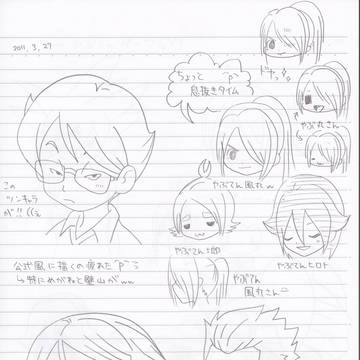 2011.3.27
ちょっと
息抜きタイム
ドヤッ
やぶ丸さん
この
ツンキャラ
が!!
やぶてん風丸w
やぶてん
やぶてんヒロト
公式風に描くの疲れた
↳特にめがねと壁山がww
やぶてん
風丸さん